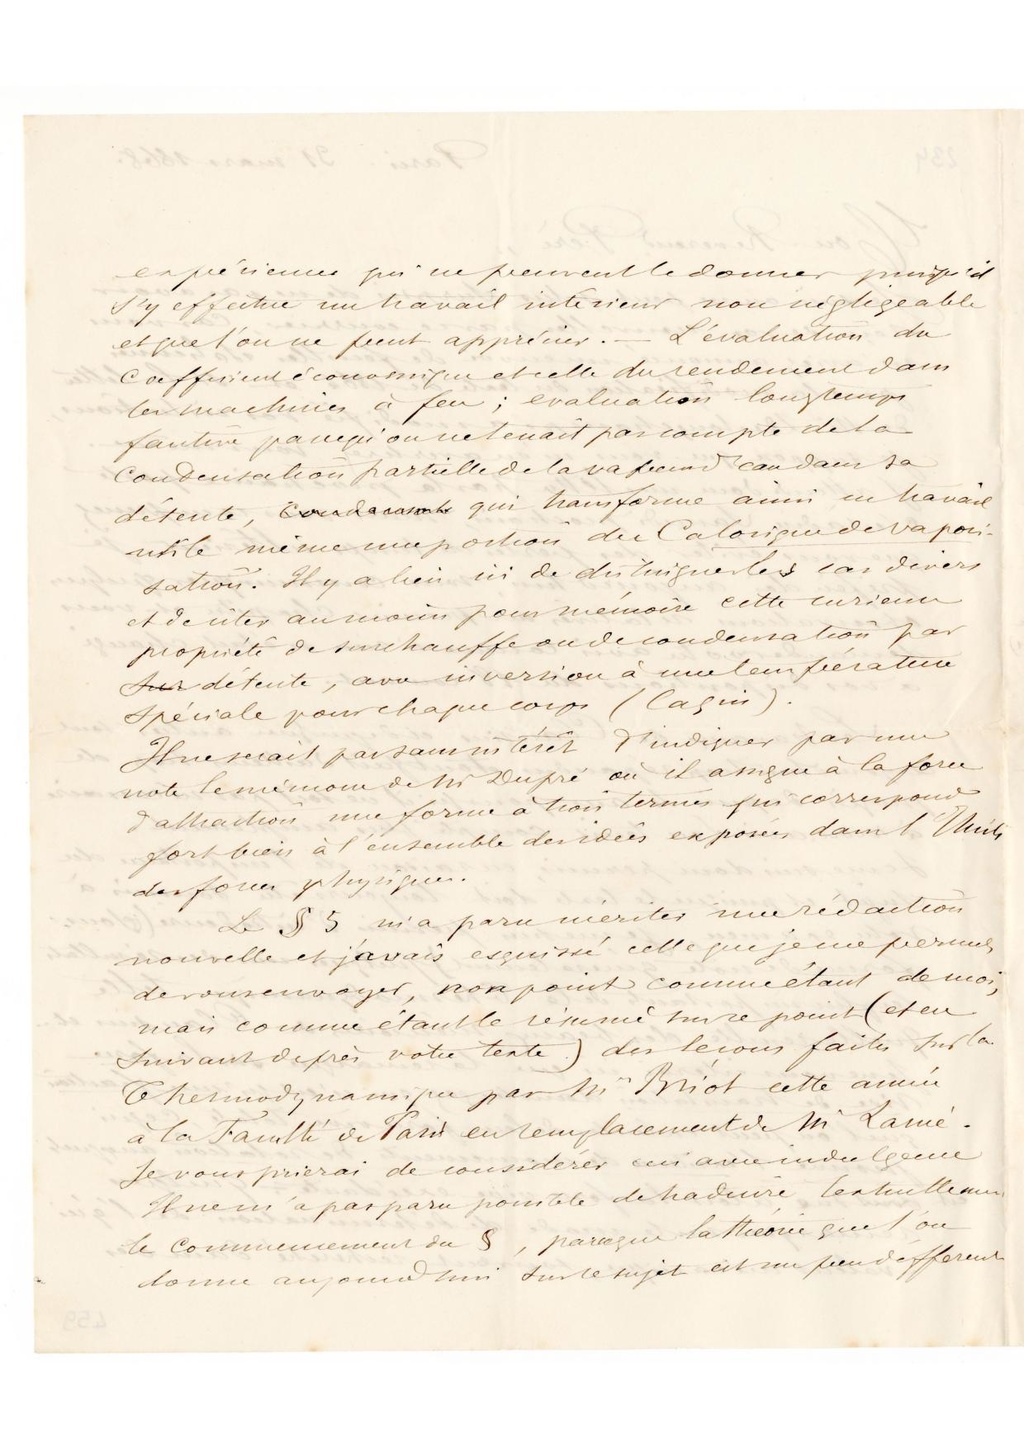 expériences qui ne peuvent le donner puisqu'il
s'y effectue un travail intérieur non négligeable
et que l'on ne peut apprécier. — L'évaluation du
Coefficient économique et celle du rendement dans
les machines à feu ; évaluation longtemps
fautive parcequ'on ne tenait pas compte de la
condensation partielle de la vapeur d'eau dans sa
détente, qui transforme ainsi en travail
utile même une portion du Calorique de vapori-
sation. Il y a lieu ici de distinguer les cas divers
et de citer au moins pour mémoire cette curieuse
propriété de surchauffe ou de condensation par
sur détente, avec inversion à une température
spéciale pour chaque corps (Cazin).
Il ne serait pas sans intérêt d'indiquer par une
note le mémoire de Mr Dupré où il assigne à la force
d'attraction une forme à trois termes qui correspond
fort bien à l'ensemble des idées exposées dans l'Unité
des forces physiques.
Le § 5 m'a paru mériter une rédaction
nouvelle et j'avais esquissé celle que je me permets
de vous envoyer, non point comme étant de moi,
mais comme étant le résumé sur ce point (et en
suivant de près votre texte) des leçons faites sur la
Thermodynamique par Mr Briot cette année
à la Faculté de Paris en remplacement de Mr Lamé.
Je vous prierai de considérer ceci avec indulgence
Il ne m'a pas paru possible de traduire textuellement
le commencement du § , parceque la théorie que l'on
donne aujourd'hui sur ce sujet est un peu différente
234
Paris. 31 mars 1868.
Mon Révérend Père,
459